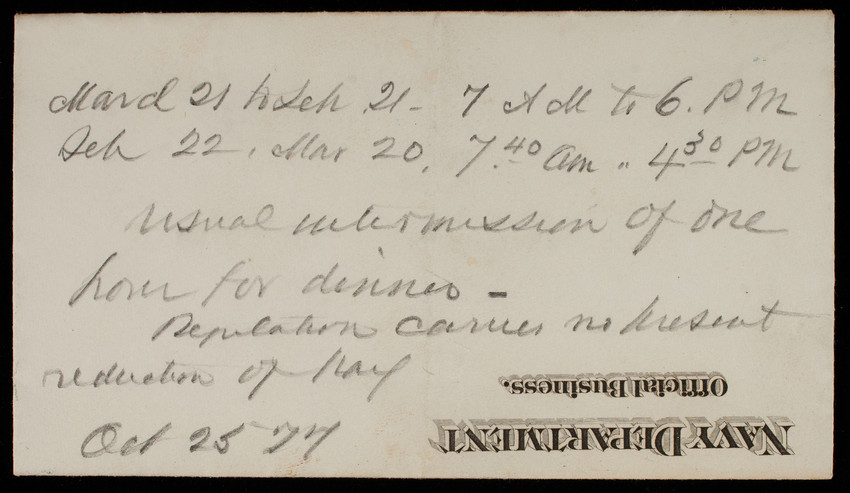 March 21 to Feb 21 - 7 AM to 6. PM
Feb 22, Mar 20, 7.40 am " 4 30 PM
Usual intermission of one
hour for dinner -
Regulation carries no present
reduction of pay
Oct 25 77
Official Business.
NAVY DEPARTMENT